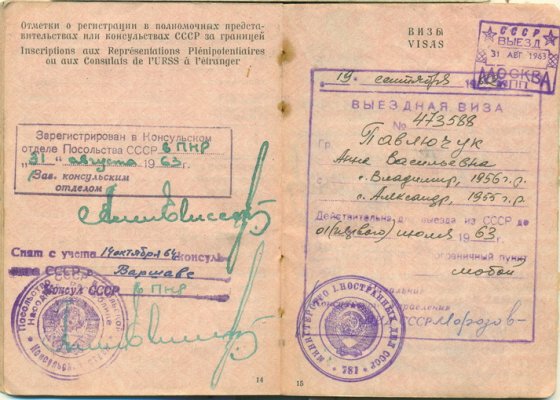 Отметки о регистрации в полномочных предста-
вительствах или консульствах СССР за границей
Inscriptions aux Représentations Plénipotentiaires
ou aux Consulats de l'URSS à l'étranger
Зарегистрирован в Консульском
отделе Посольства СССР в ПНР
"31" августа 1963 г.
Зав. консульским
отделом
Снят с учета 14 октября 64 консул
СССР в Варшаве
Консул СССР в ПНР
14
ВИЗЫ
VISAS
СССР
ВЫЕЗД
31 АВГ 1963
МОСКВА
КПП
19 сентября 196
ВЫЕЗДНАЯ ВИЗА
№ 473588
Гр. Павлючук
Анна Васильевна
с. Владимир, 1956 г.р.
с. Александр, 1955 г.р.
Действительна для выезда из СССР до
01 (первого) июля 1963 г.
пограничный пункт
любой
Консульского управления
МИД СССР Морозов
МИНИСТЕРСТВО ИНОСТРАННЫХ ДЕЛ СССР
781
15